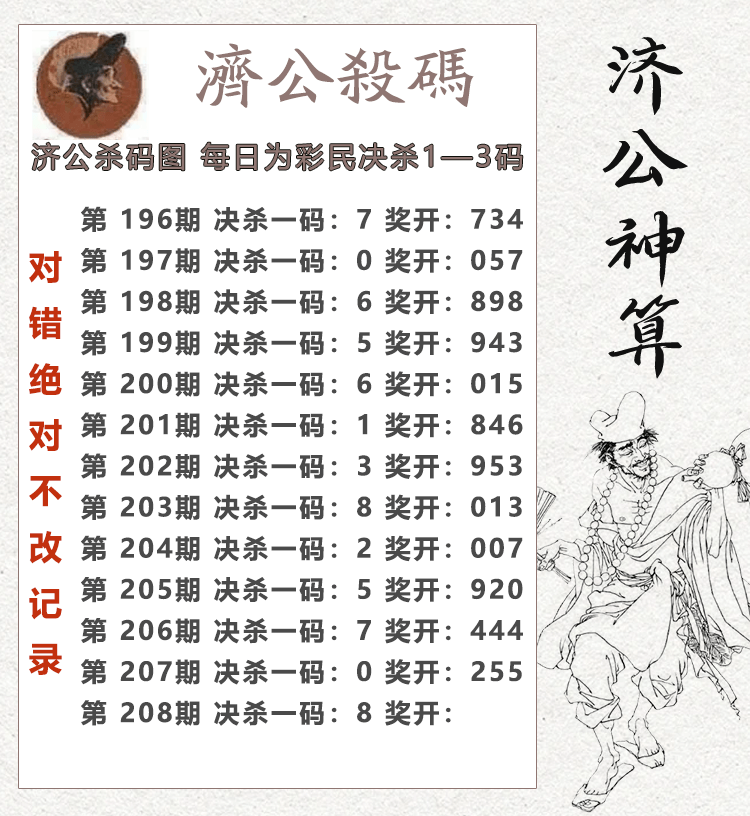 濟公殺碼
济公杀码图 每日为彩民决杀1—3码
第 196期 决杀一码：7 奖开：734
第 197期 决杀一码：0 奖开：057
第 198期 决杀一码：6 奖开：898
第 199期 决杀一码：5 奖开：943
第 200期 决杀一码：6 奖开：015
第 201期 决杀一码：1 奖开：846
第 202期 决杀一码：3 奖开：953
第 203期 决杀一码：8 奖开：013
第 204期 决杀一码：2 奖开：007
第 205期 决杀一码：5 奖开：920
第 206期 决杀一码：7 奖开：444
第 207期 决杀一码：0 奖开：255
第 208期 决杀一码：8 奖开：
对错绝对不改记录
济公神算